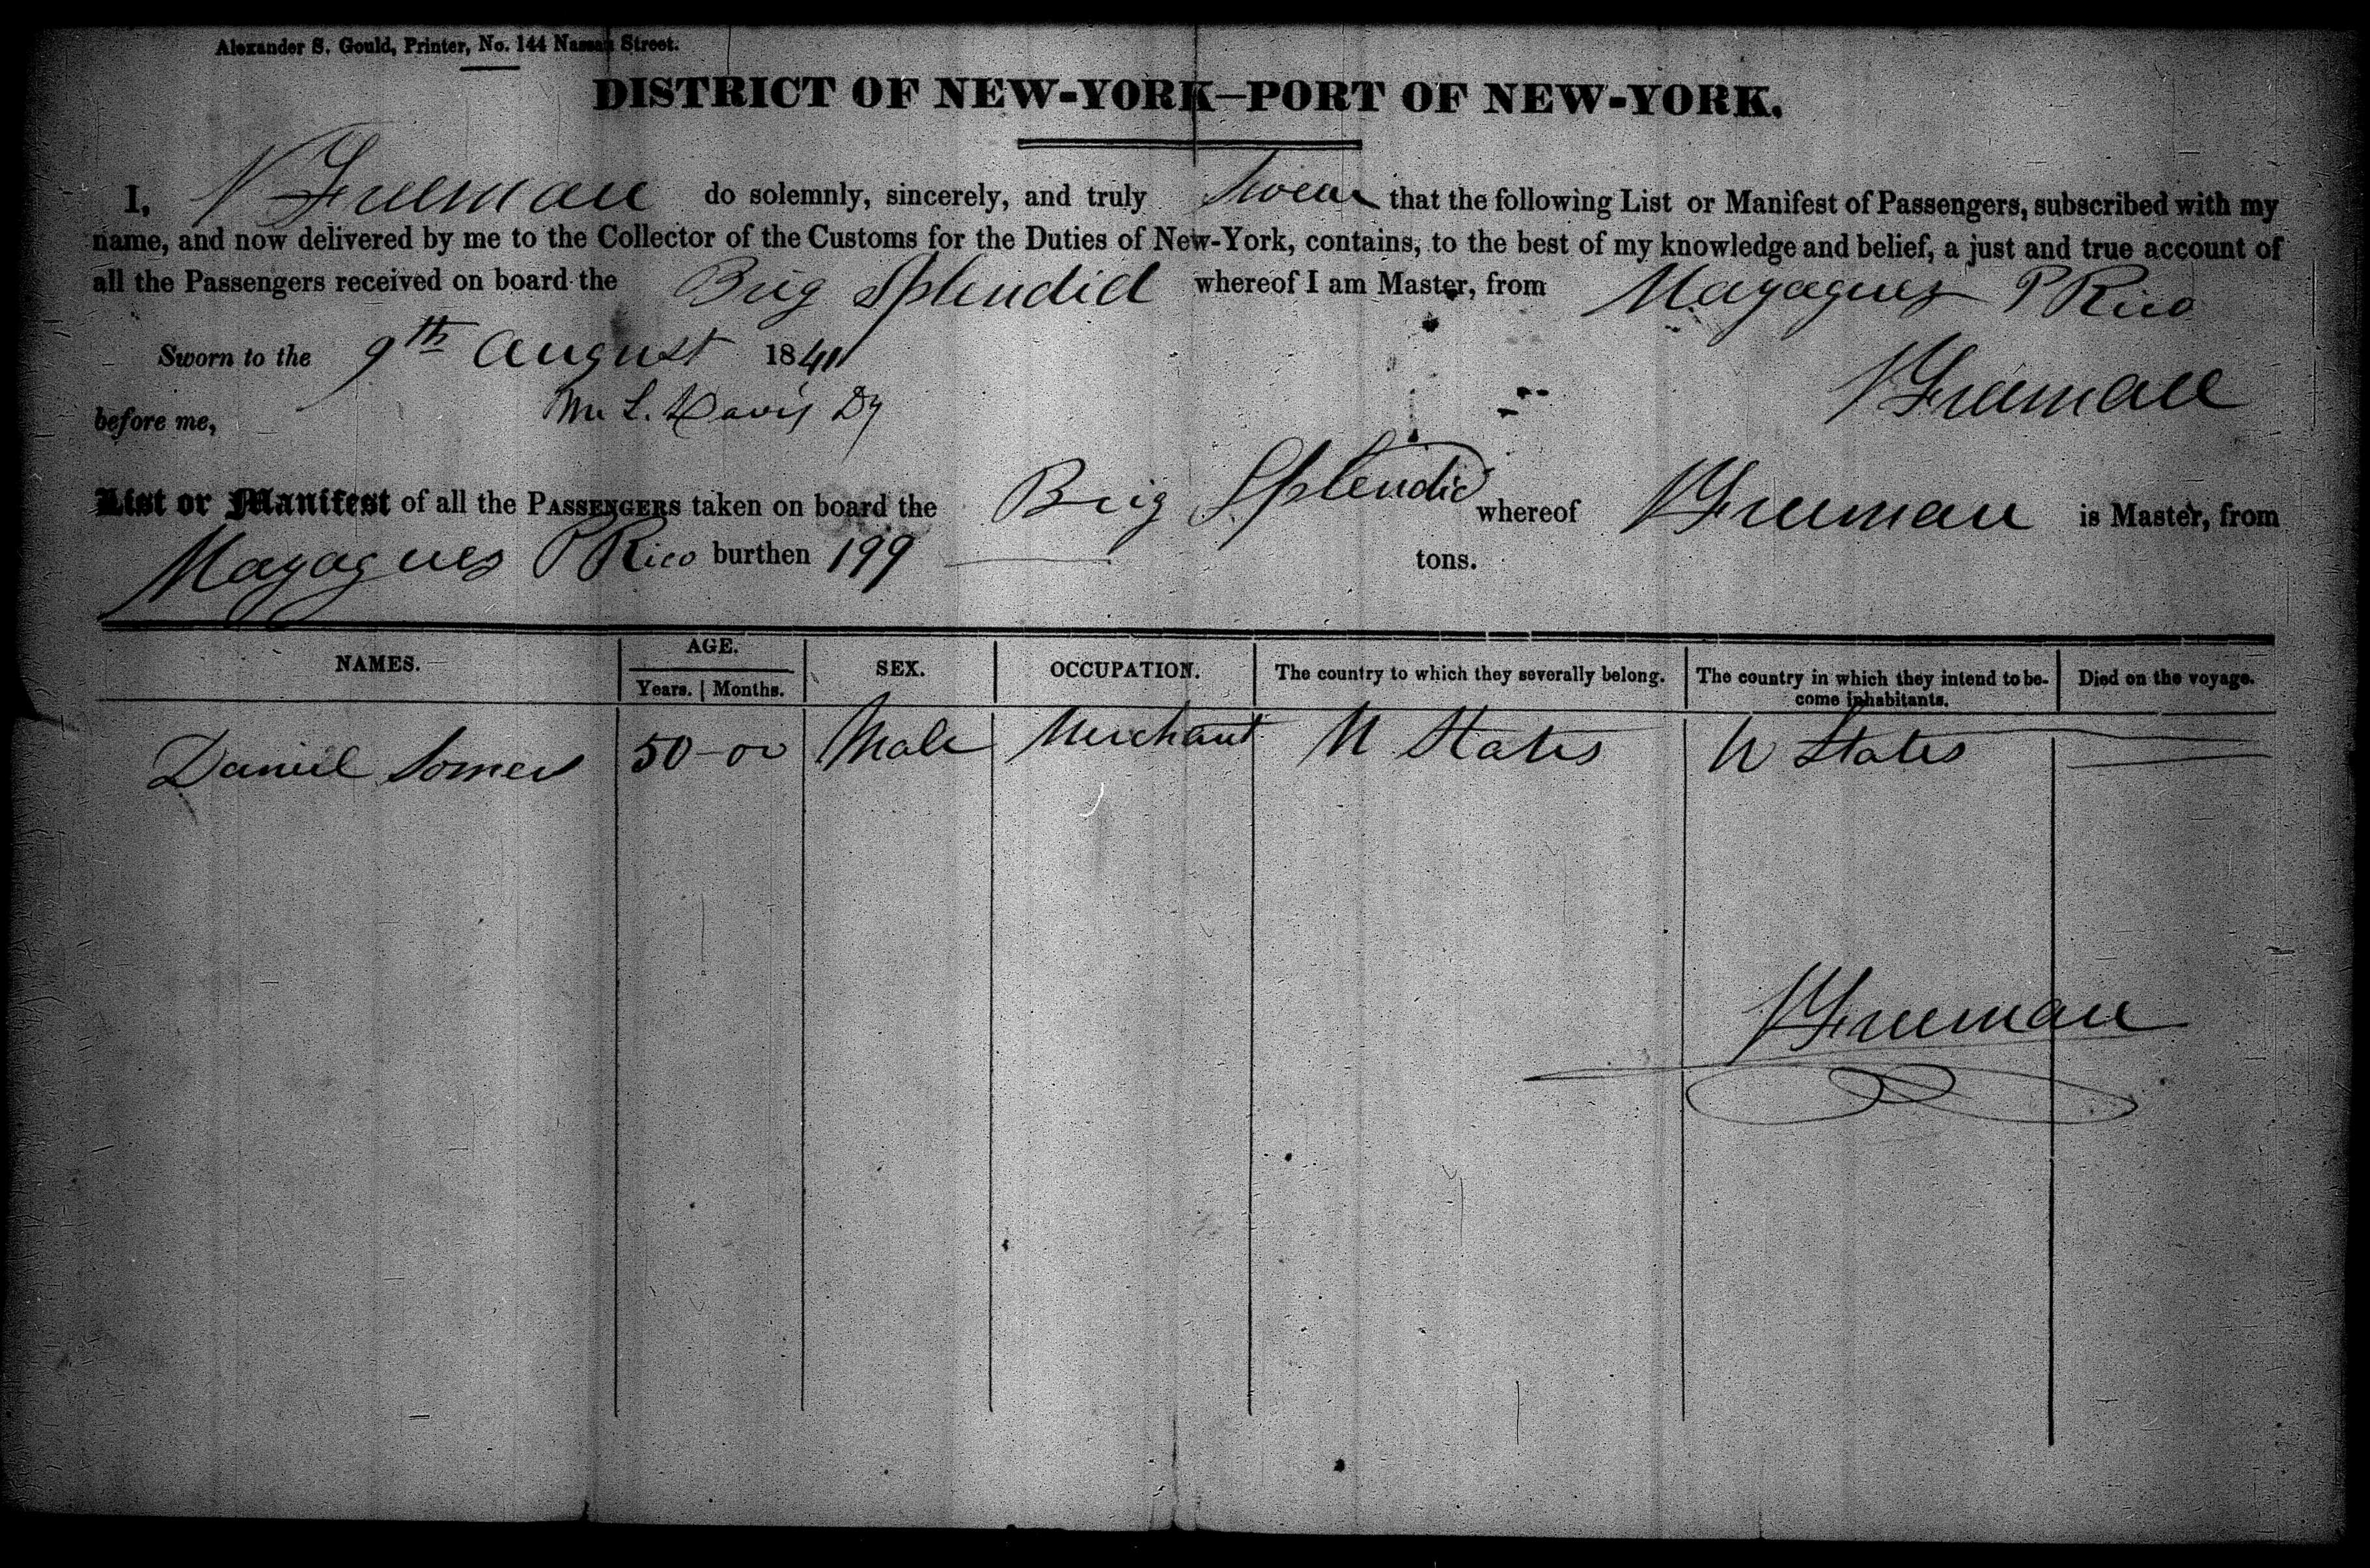 Alexander S. Gould, Printer, No. 144 Nassau Street.
DISTRICT OF NEW-YORK—PORT OF NEW-YORK.
I, N Freeman do solemnly, sincerely, and truly Swear that the following List or Manifest of Passengers, subscribed with my
name, and now delivered by me to the Collector of the Customs for the Duties of New-York, contains, to the best of my knowledge and belief, a just and true account of
all the Passengers received on board the Brig Splendid whereof I am Master, from Mayaguez P Rico
Sworn to the 9th August 1841 N Freeman
before me, M. L. Davis Dy
List or Manifest of all the PASSENGERS taken on board the Brig Splendid whereof N Freeman is Master, from
Mayagues P Rico burthen 199 tons.
NAMES. AGE. SEX. OCCUPATION. The country to which they severally belong. The country in which they intend to be- Died on the voyage.
Years. Months. come inhabitants.
Daniel Somers 50 - 00 Male Merchant U States U States
N Freeman